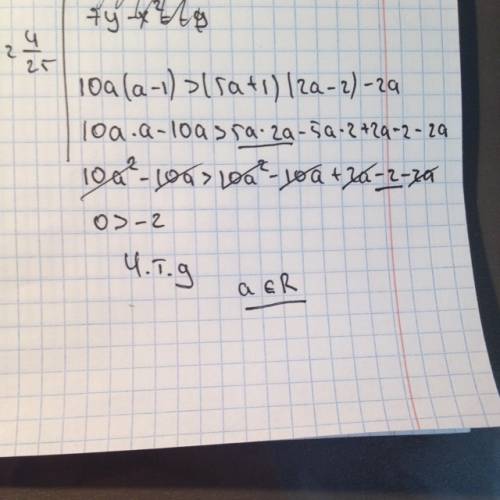 2 4/25
10a(a-1)>(5a+1)(2a-2)-2a
10a·a-10a>5a·2a-5a·2+2a-2-2a
10a²-10a>10a²-10a+2a-2-2a
0>-2
Ч.т.д
a∈R